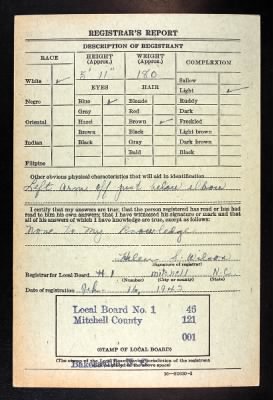 REGISTRAR'S REPORT
DESCRIPTION OF REGISTRANT
RACE HEIGHT (Approx.) WEIGHT (Approx.) COMPLEXION
5' 11" 180
White ✓ Sallow
EYES HAIR Light ✓
Negro Blue ✓ Blonde Ruddy
Gray Red Dark
Oriental Hazel Brown ✓ Freckled
Brown Black Light brown
Indian Black Gray Dark brown
Bald Black
Filipino
Other obvious physical characteristics that will aid in identification
Left arm off just below elbow
I certify that my answers are true; that the person registered has read or has had
read to him his own answers; that I have witnessed his signature or mark and that
all of his answers of which I have knowledge are true, except as follows:
None to my knowledge
Helen S. Wilson
(Signature of registrar)
Registrar for Local Board #1 Mitchell N.C.
(Number) (City or county) (State)
Date of registration Feb. 16, 1942
Local Board No. 1 45
Mitchell County 121
001
(STAMP OF LOCAL BOARD)
(The stamp of the Local Board jurisdiction of the registrant